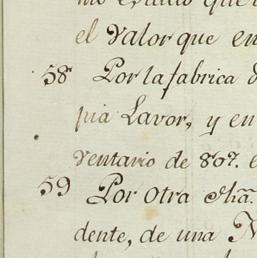 el valor que en
58 Por la fabrica d
pia Lavor, y en
ventario de 807. e
59 Por otra Mâ.
dente, de una N